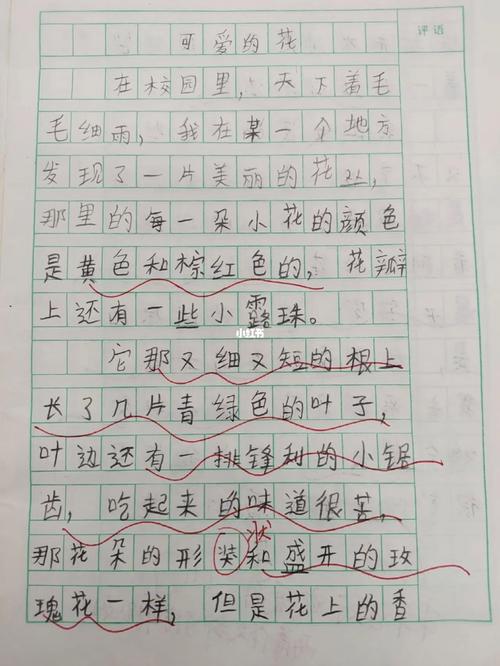 可爱的花
评语
在校园里，天下着毛
毛细雨，我在某一个地方
发现了一片美丽的花丛，
那里的每一朵小花的颜色
是黄色和棕红色的，花瓣
上还有一些小露珠。
小红书
它那又细又短的根上
长了几片青绿色的叶子，
叶边还有一排锋利的小锯
齿，吃起来的味道很苦，
状
那花朵的形装和盛开的玫
瑰花一样，但是花上的香